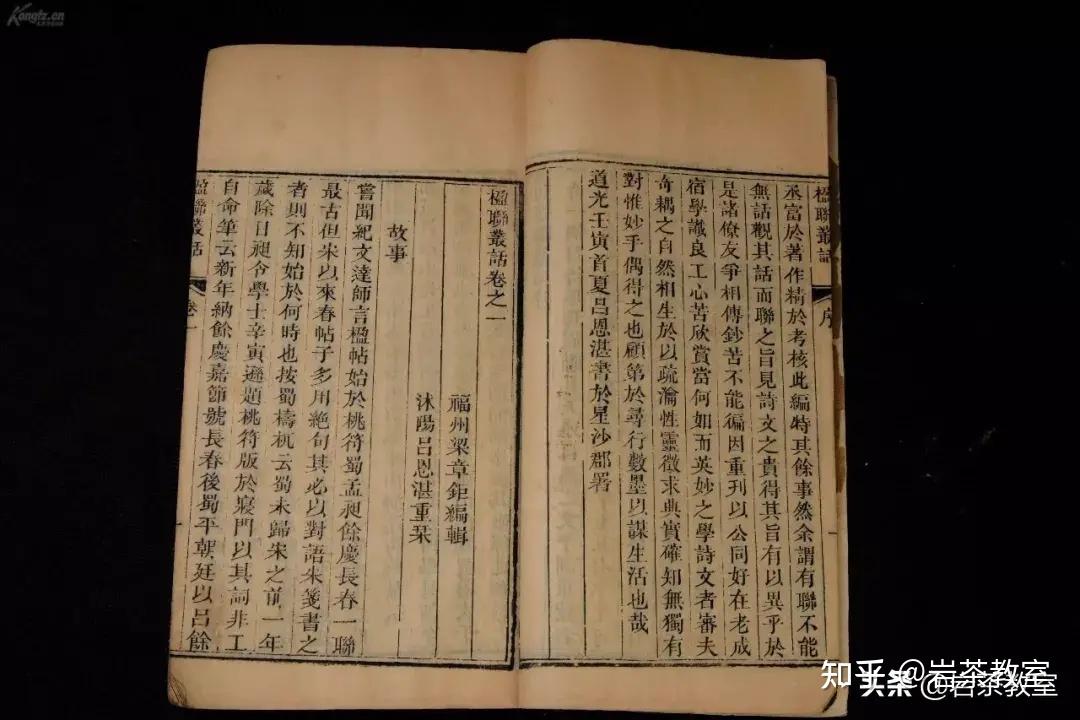 楹聯叢話
序
丞富於著作精於考核此編特其餘事然余謂有聯不能
無話觀其話而聯之旨見詩文之貴得其旨有以異乎於
是諸僚友爭相傳鈔苦不能徧因重刊以公同好在老成
宿學識良工心苦欣賞當何如而英妙之學詩文者審夫
奇耦之自然相生於以疏瀹性靈徵求典實確知無獨有
對惟妙手偶得之也顧第於尋行數墨以謀生活也哉
道光壬寅首夏呂恩湛書於星沙郡署
楹聯叢話卷之一
福州梁章鉅編輯
沭陽呂恩湛重栞
故事
嘗聞紀文達師言楹帖始於桃符蜀孟昶餘慶長春一聯
最古但宋以來春帖子多用絕句其必以對語朱箋書之
者則不知始於何時也按蜀檮杌云蜀未歸宋之前一年
歲除日昶令學士辛寅遜題桃符版於寢門以其詞非工
自命筆云新年納餘慶嘉節號長春後蜀平朝廷以呂餘
楹聯叢話
卷一
一
Kongfz.cn
知乎 @岩茶教室
头条 @岩茶教室